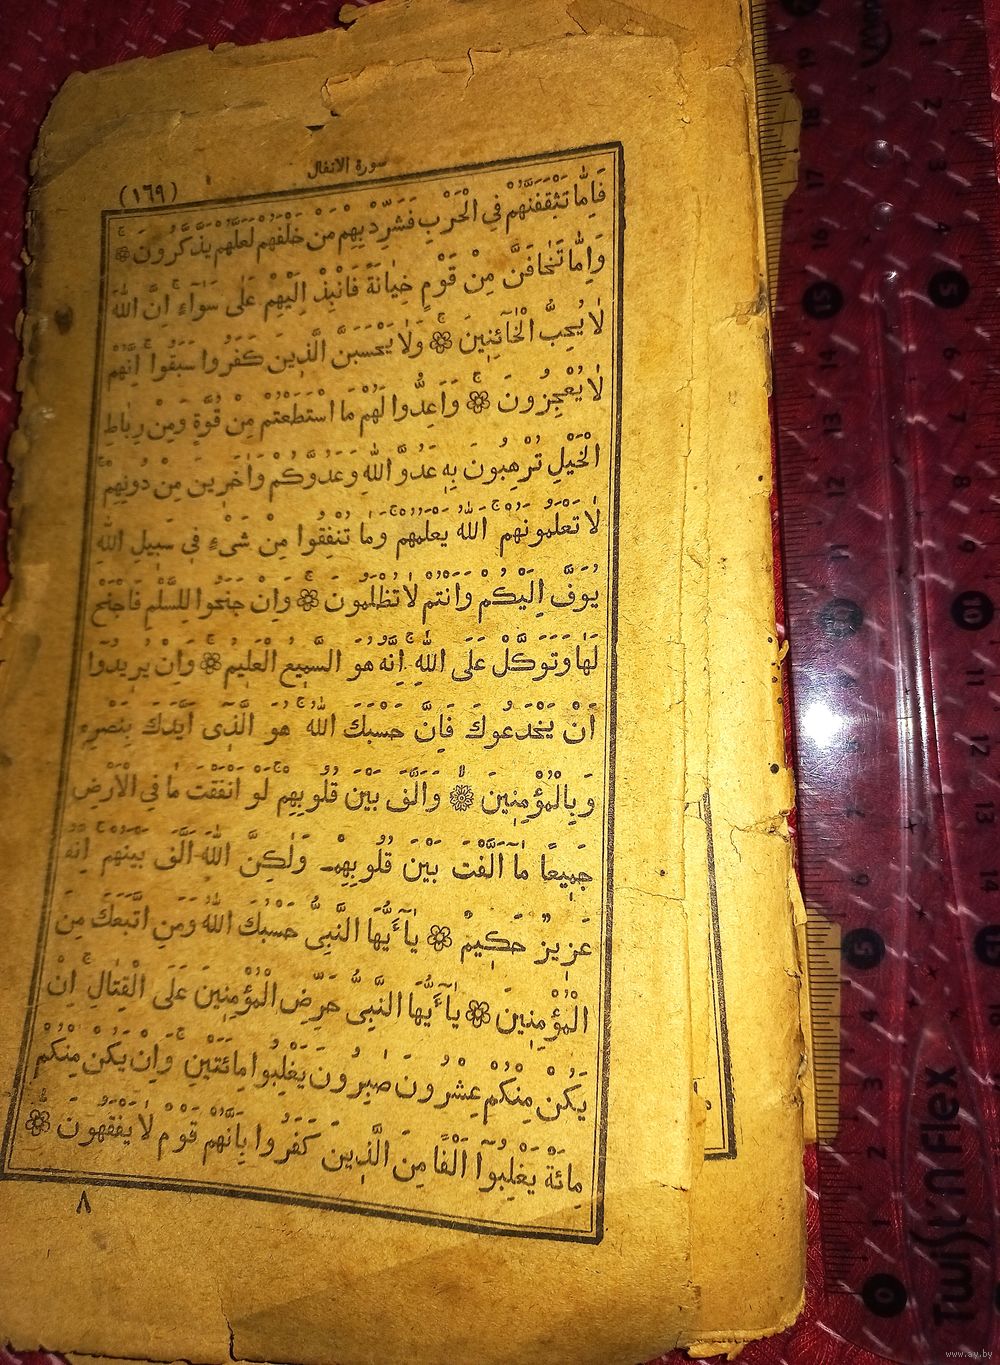 سورة الانفال
(١٦٩)
فَاِمَّا تَثْقَفَنَّهُمْ فِي الْحَرْبِ فَشَرِّدْ بِهِمْ مَنْ خَلْفَهُمْ لَعَلَّهُمْ يَذَّكَّرُونَ
وَاِمَّا تَخَافَنَّ مِنْ قَوْمٍ خِيَانَةً فَانْبِذْ اِلَيْهِمْ عَلٰى سَوَاءٍ اِنَّ اللّٰهَ
لَا يُحِبُّ الْخَائِنِينَ وَلَا يَحْسَبَنَّ الَّذِينَ كَفَرُوا سَبَقُوا اِنَّهُمْ
لَا يُعْجِزُونَ وَاَعِدُّوا لَهُمْ مَا اسْتَطَعْتُمْ مِنْ قُوَّةٍ وَمِنْ رِبَاطِ
الْخَيْلِ تُرْهِبُونَ بِهِ عَدُوَّ اللّٰهِ وَعَدُوَّكُمْ وَاٰخَرِينَ مِنْ دُونِهِمْ
لَا تَعْلَمُونَهُمْ اَللّٰهُ يَعْلَمُهُمْ وَمَا تُنْفِقُوا مِنْ شَىْءٍ فِي سَبِيلِ اللّٰهِ
يُوَفَّ اِلَيْكُمْ وَاَنْتُمْ لَا تُظْلَمُونَ وَاِنْ جَنَحُوا لِلسَّلْمِ فَاجْنَحْ
لَهَا وَتَوَكَّلْ عَلَى اللّٰهِ اِنَّهُ هُوَ السَّمِيعُ الْعَلِيمُ وَاِنْ يُرِيدُوا
اَنْ يَخْدَعُوكَ فَاِنَّ حَسْبَكَ اللّٰهُ هُوَ الَّذِى اَيَّدَكَ بِنَصْرِهِ
وَبِالْمُؤْمِنِينَ وَاَلَّفَ بَيْنَ قُلُوبِهِمْ لَوْ اَنْفَقْتَ مَا فِي الْاَرْضِ
جَمِيعًا مَا اَلَّفْتَ بَيْنَ قُلُوبِهِمْ وَلٰكِنَّ اللّٰهَ اَلَّفَ بَيْنَهُمْ اِنَّهُ
عَزِيزٌ حَكِيمٌ يَا اَيُّهَا النَّبِىُّ حَسْبُكَ اللّٰهُ وَمَنِ اتَّبَعَكَ مِنَ
الْمُؤْمِنِينَ يَا اَيُّهَا النَّبِىُّ حَرِّضِ الْمُؤْمِنِينَ عَلَى الْقِتَالِ اِنْ
يَكُنْ مِنْكُمْ عِشْرُونَ صَابِرُونَ يَغْلِبُوا مِائَتَيْنِ وَاِنْ يَكُنْ مِنْكُمْ
مِائَةٌ يَغْلِبُوا اَلْفًا مِنَ الَّذِينَ كَفَرُوا بِاَنَّهُمْ قَوْمٌ لَا يَفْقَهُونَ
٨
Twist'n'Flex
www.ay.by